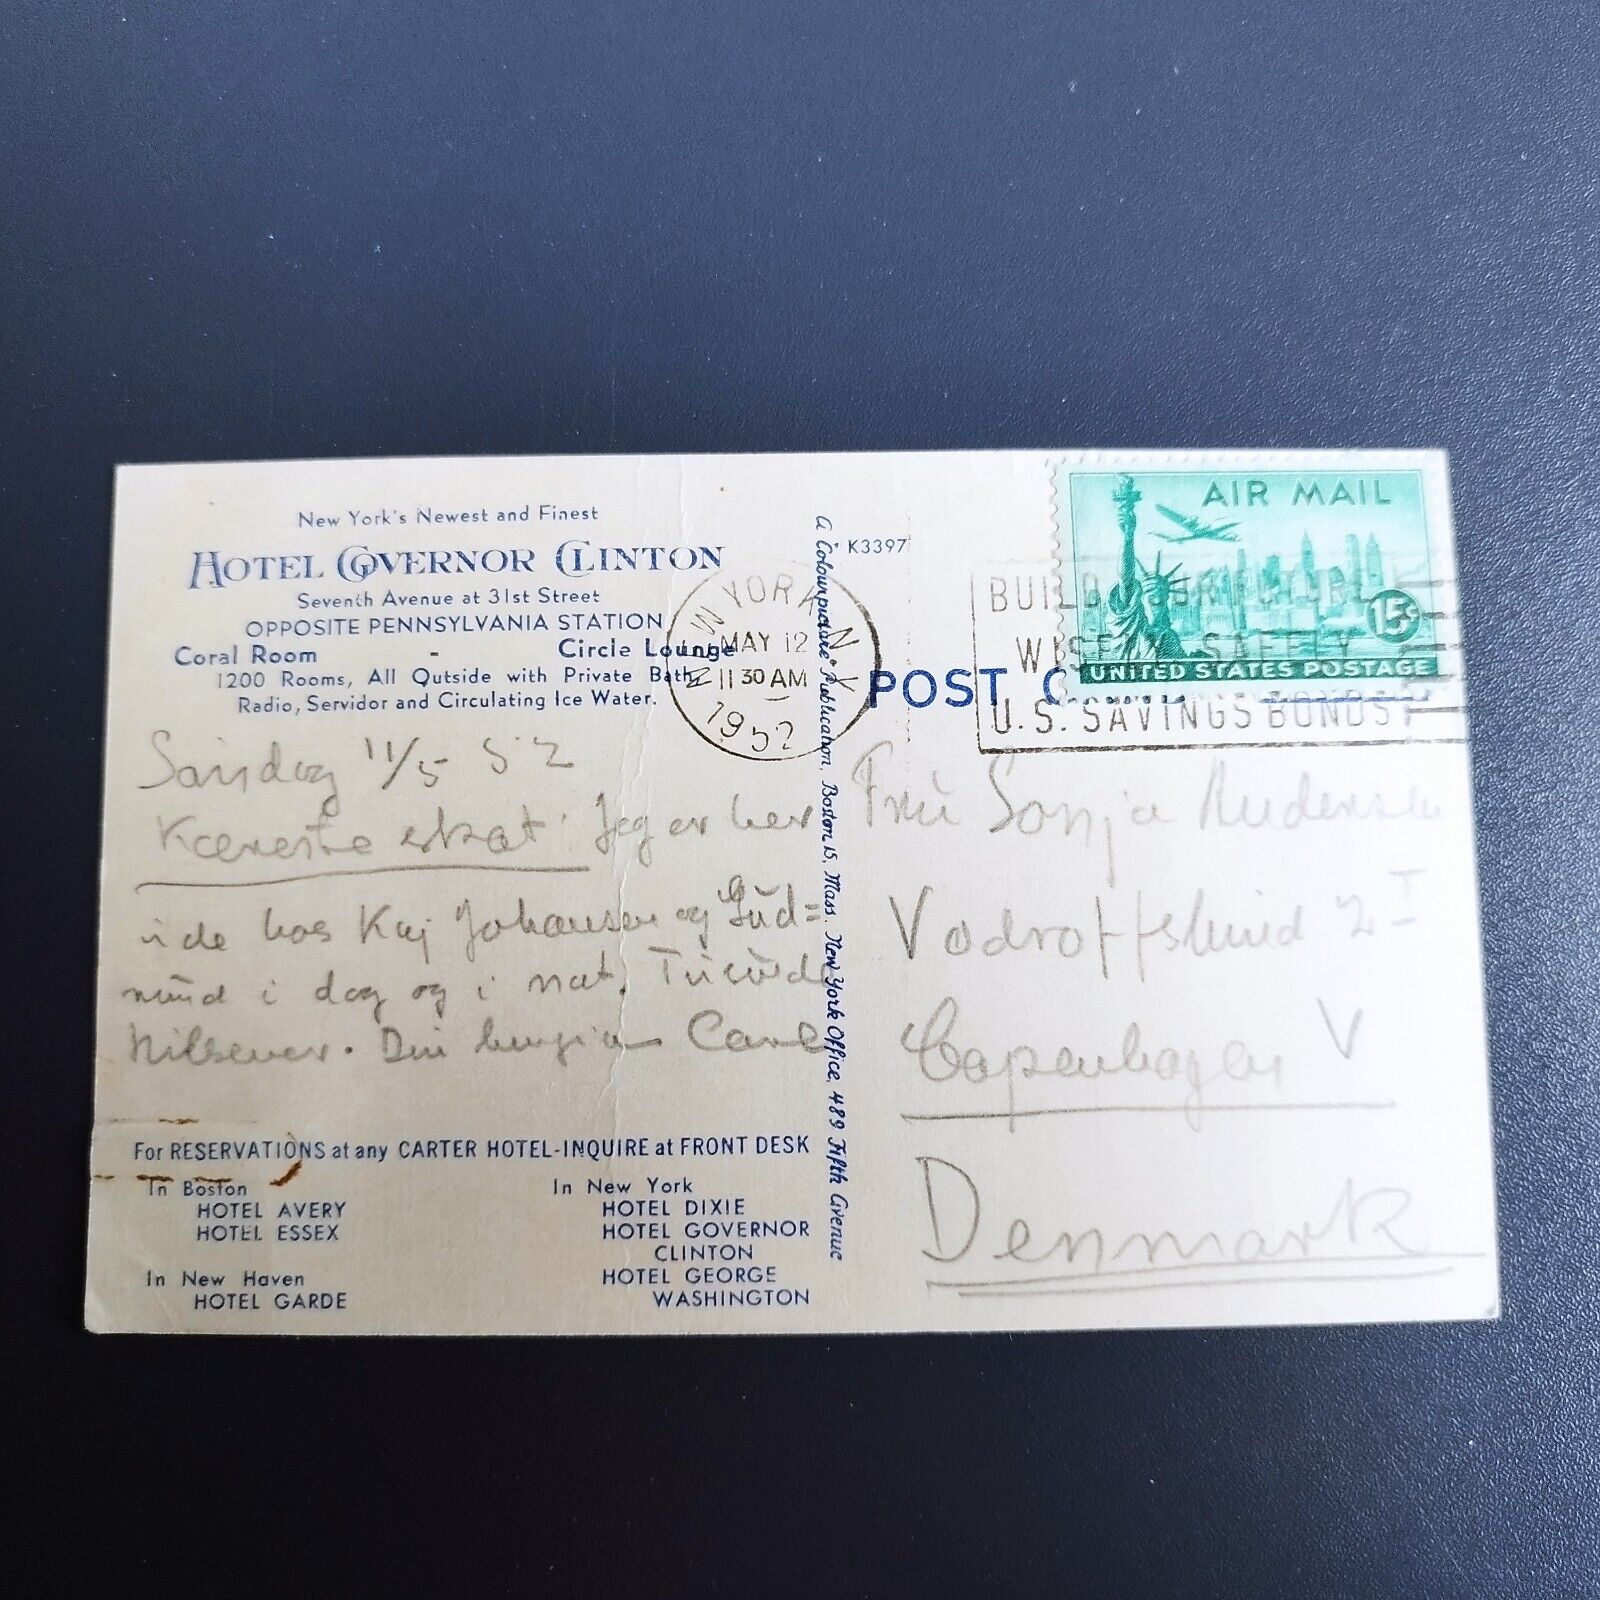 New York's Newest and Finest
HOTEL GOVERNOR CLINTON
Seventh Avenue at 31st Street
OPPOSITE PENNSYLVANIA STATION
Coral Room - Circle Lounge
1200 Rooms, All Outside with Private Bath,
Radio, Servidor and Circulating Ice Water.
Søndag 11/5 52
Kæreste skat! Jeg er her
ude hos Kaj Johansen og Gud=
mund i dag og i nat.
Din hengivne
For RESERVATIONS at any CARTER HOTEL-INQUIRE at FRONT DESK
In Boston
HOTEL AVERY
HOTEL ESSEX
In New Haven
HOTEL GARDE
In New York
HOTEL DIXIE
HOTEL GOVERNOR
CLINTON
HOTEL GEORGE
WASHINGTON
A Colourpicture Publication, Boston 15, Mass. New York Office, 489 Fifth Avenue
K3397
NEW YORK, N.Y.
MAY 12
11 30 AM
1952
POST
AIR MAIL
15¢
UNITED STATES POSTAGE
BUILD YOUR FUTURE
WISELY SAFELY
U.S. SAVINGS BONDS
Fru Sonja Andersen
Vodroffslund 2 I
Copenhagen V
Denmark